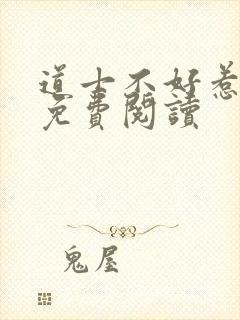 道士不好惹
免費閱讀
鬼屋